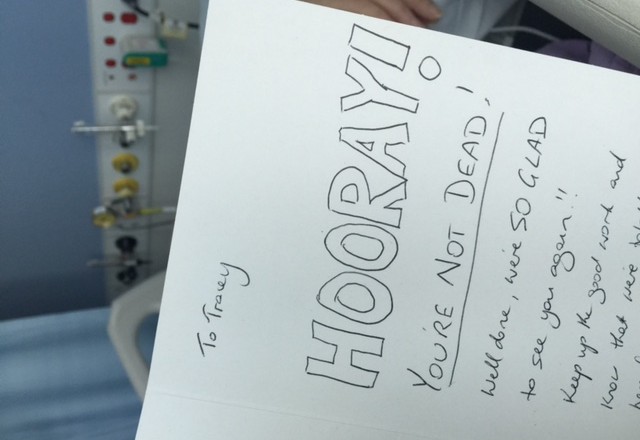 To Tracey
HOORAY!
YOU'RE NOT DEAD!
Well done, we're SO GLAD
to see you again!!
Keep up the good work and
know that we're